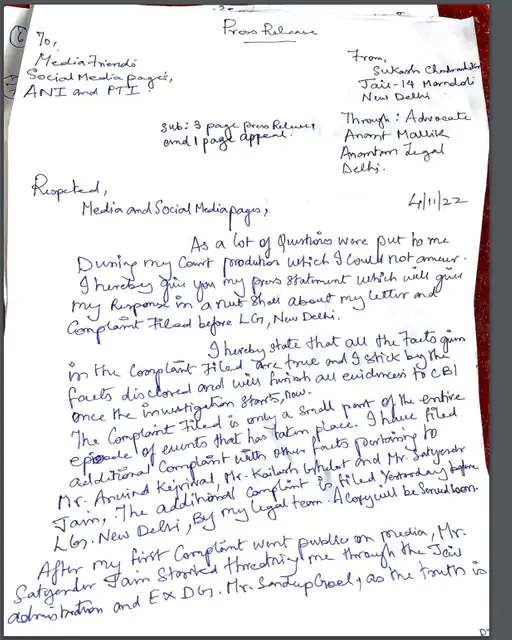 Press Release
To,
Media Friends
Social Media pages,
ANI and PTI
From,
Sukash Chandrashekar
Jail-14 Mandoli
New Delhi
Through: Advocate
Anant Mallik
Anantam Legal
Delhi.
Sub: 3 page press Release,
and 1 page appeal.
Respeted,
4/11/22
Media and Social Media pages,
As a lot of Questions were put to me
During my Court prodution which I could not answer.
I hereby give you my press statement which will give
my Response in a nut Shell about my letter and
Complaint Filed before LG, New Delhi.
I hereby state that all the Facts given
in the Complaint Filed are true and I stick by the
facts disclosed and will furnish all evidences to CBI
once the investigation starts, now.
The Complaint Filed is only a small part of the entire
episode of events that has taken place. I have filed
additional Complaint with other facts pertaining to
Mr. Arvind Kejriwal, Mr. Kailash Gehlot and Mr. Satyender
Jain, The additional Complaint is filed Yesterday before
LG. New Delhi, By my legal team. A Copy will be Served soon.
After my first Complaint went public on media, Mr.
Satyender Jain Started threating me through the Jail
administration and Ex DG. Mr. Sandeep Goel, as the truth is